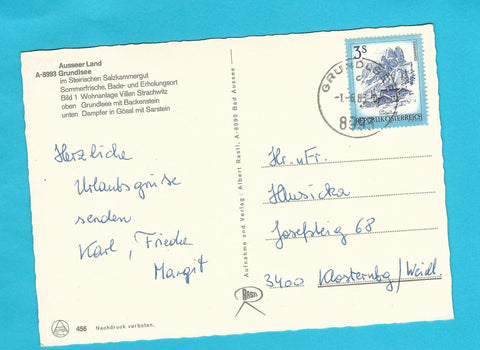 Ausseer Land
A-8993 Grundlsee
im Steirischen Salzkammergut
Sommerfrische, Bade- und Erholungsort
Bild 1 Wohnanlage Villen Strachwitz
oben Grundlsee mit Backenstein
unten Dampfer in Gössl mit Sarstein
Herzliche
Urlaubsgrüsse
senden
Karl, Frieda
Margit
456 Nachdruck verboten.
Aufnahme und Verlag: Albert Rastl, A-8990 Bad Aussee
RASTL
3 S
REPUBLIK ÖSTERREICH
GRUNDLSEE
899
Hr. u Fr.
Josefsteig 68
3400 Klosternbg/Weidl.